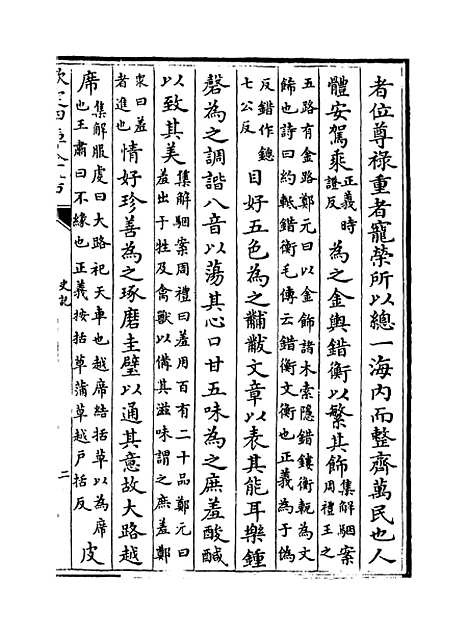 者位尊祿重者寵榮所以總一海內而整齊萬民也人
體安駕乘
正義時
證反
為之金輿錯衡以繁其飾
集解駰案
周禮王之
五路有金路鄭元曰以金飾諸木索隱錯鏤衡軛為文
飾也詩曰約軝錯衡毛傳云錯衡文衡也正義為于偽
反錯作鏓
七公反
目好五色為之黼黻文章以表其能耳樂鍾
磬為之調諧八音以蕩其心口甘五味為之庶羞酸鹹
以致其美
集解駰案周禮曰羞用百有二十品鄭元曰
羞出于牲及禽獸以備其滋味謂之庶羞鄭
衆曰羞
者進也
情好珍善為之琢磨圭璧以通其意故大路越
席
集解服虔曰大路祀天車也越席結括草以為席
也王肅曰不緣也正義按括草蒲草越戶括反
皮
史記
二